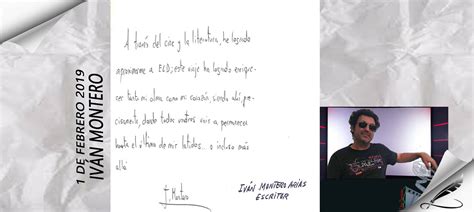 1 DE FEBRERO 2019
IVÁN MONTERO
A través del cine y la literatura, he logrado
aproximarme a ECD; este viaje ha logrado enrique-
cer tanto mi alma como mi corazón, siendo ahí pre-
cisamente, donde todos vosotros vais a permanecer
hasta el último de mis latidos... o incluso más
allá
I. Montero
IVÁN MONTERO ARIAS
ESCRITOR